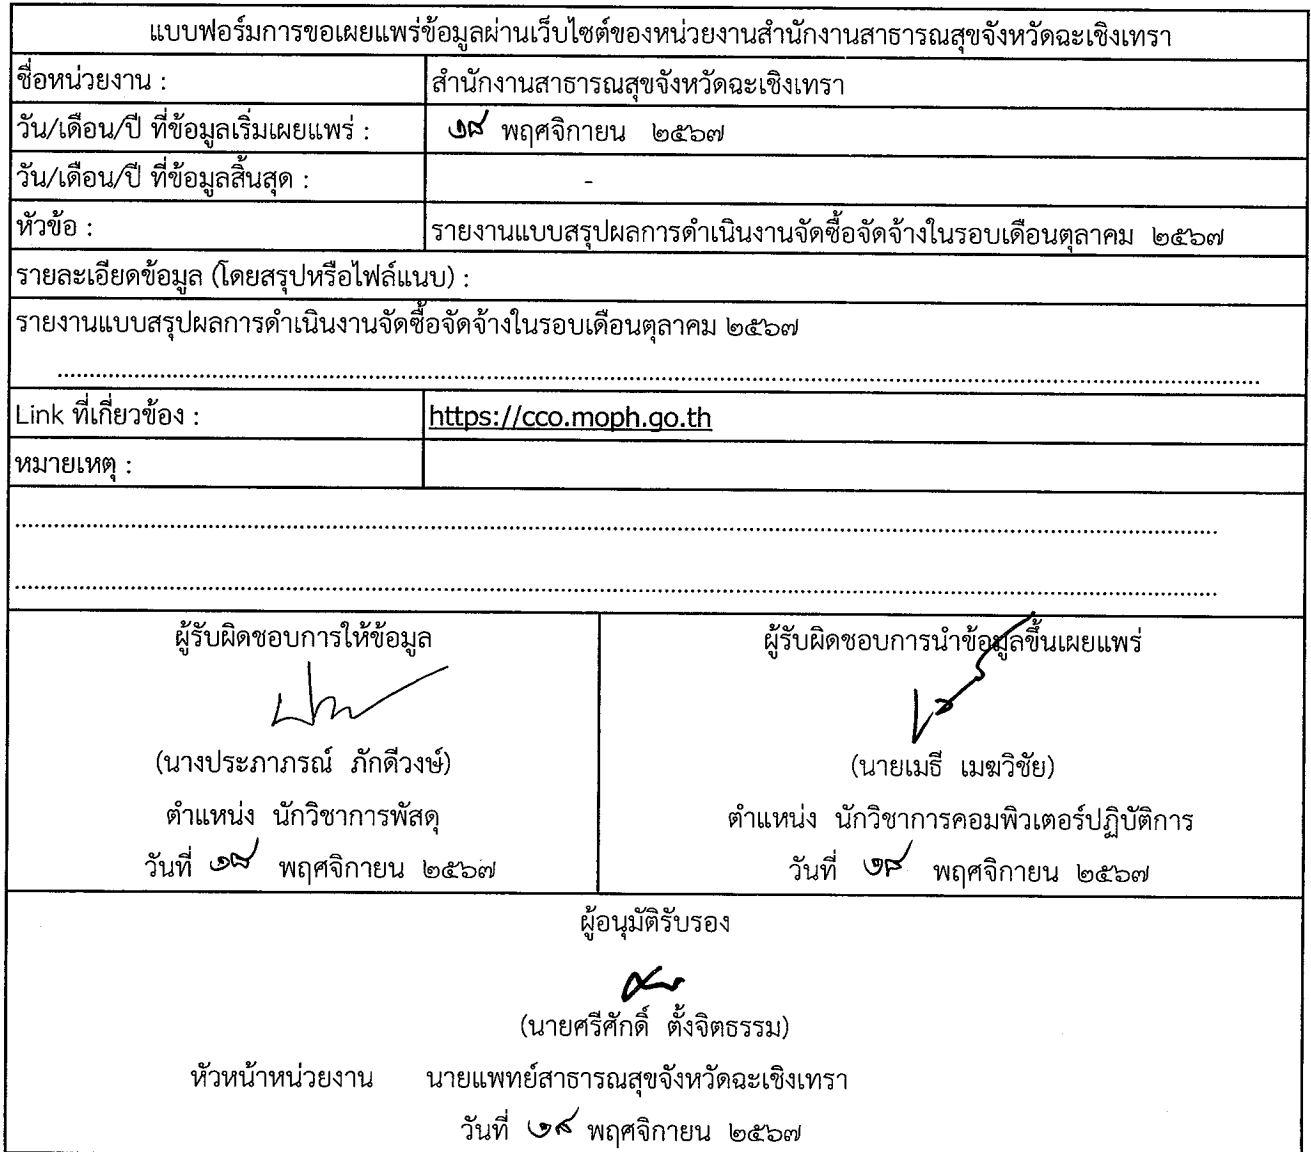 แบบฟอร์มการขอเผยแพร่ข้อมูลผ่านเว็บไซต์ของหน่วยงานสำนักงานสาธารณสุขจังหวัดฉะเชิงเทรา
ชื่อหน่วยงาน : สำนักงานสาธารณสุขจังหวัดฉะเชิงเทรา
วัน/เดือน/ปี ที่ข้อมูลเริ่มเผยแพร่ : ๑๘ พฤศจิกายน ๒๕๖๗
วัน/เดือน/ปี ที่ข้อมูลสิ้นสุด : -
หัวข้อ : รายงานแบบสรุปผลการดำเนินงานจัดซื้อจัดจ้างในรอบเดือนตุลาคม ๒๕๖๗
รายละเอียดข้อมูล (โดยสรุปหรือไฟล์แนบ) :
รายงานแบบสรุปผลการดำเนินงานจัดซื้อจัดจ้างในรอบเดือนตุลาคม ๒๕๖๗
Link ที่เกี่ยวข้อง : https://cco.moph.go.th
หมายเหตุ :
ผู้รับผิดชอบการให้ข้อมูล
(นางประภาภรณ์ ภักดีวงษ์)
ตำแหน่ง นักวิชาการพัสดุ
วันที่ ๑๘ พฤศจิกายน ๒๕๖๗
ผู้รับผิดชอบการนำข้อมูลขึ้นเผยแพร่
(นายเมธี เมฆวิชัย)
ตำแหน่ง นักวิชาการคอมพิวเตอร์ปฏิบัติการ
วันที่ ๑๘ พฤศจิกายน ๒๕๖๗
ผู้อนุมัติรับรอง
(นายศรีศักดิ์ ตั้งจิตธรรม)
หัวหน้าหน่วยงาน นายแพทย์สาธารณสุขจังหวัดฉะเชิงเทรา
วันที่ ๑๘ พฤศจิกายน ๒๕๖๗